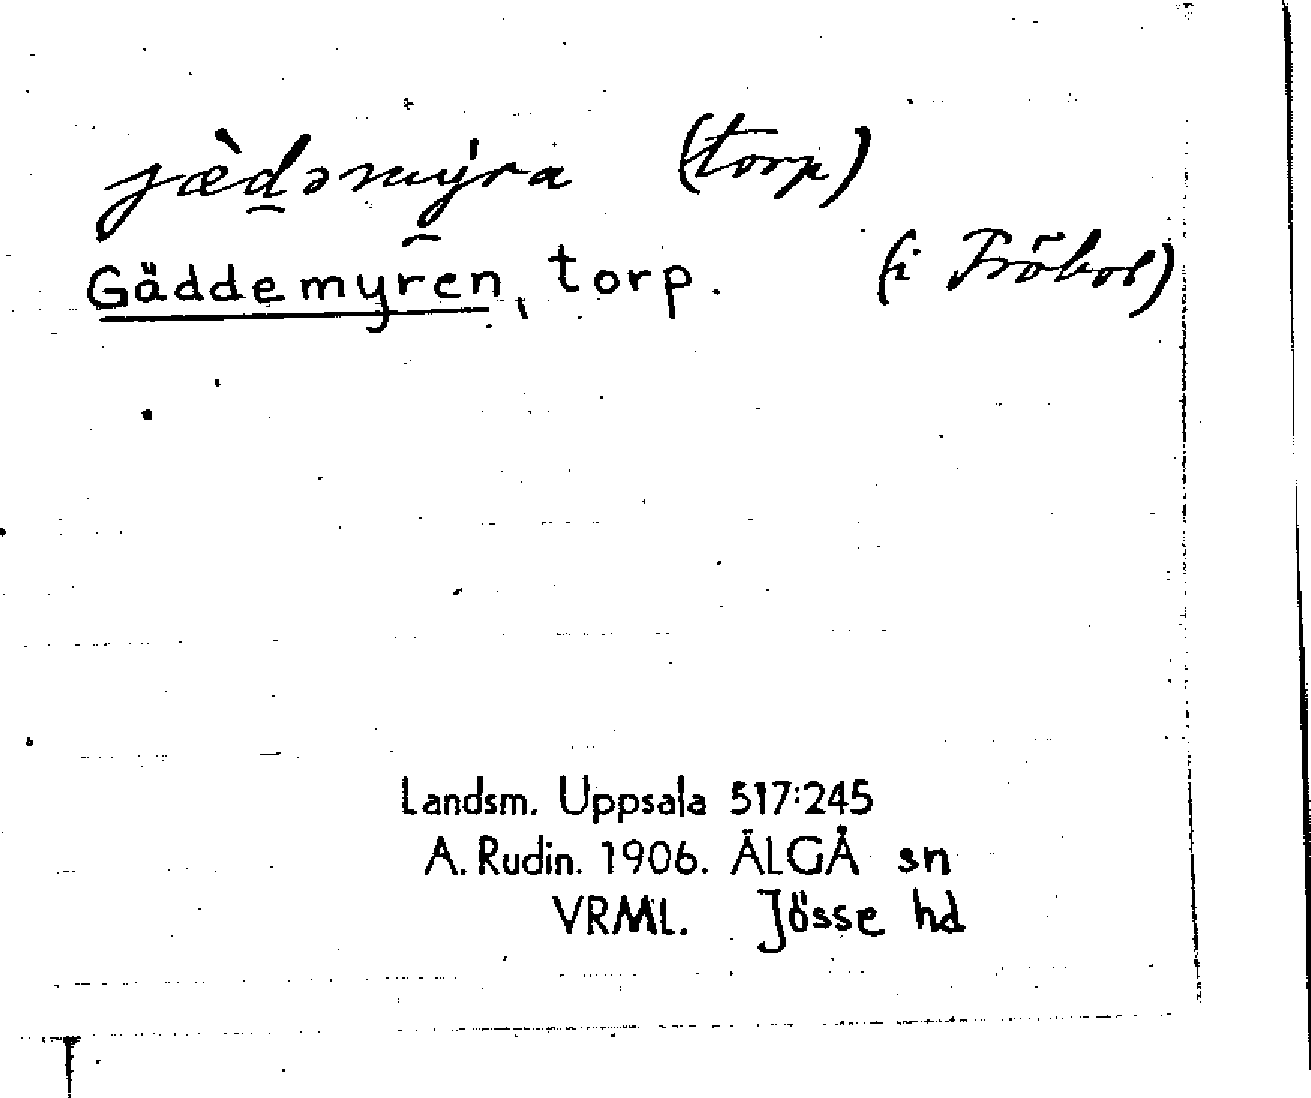 jæ̀d̲əmýra (torp)
(i Fröbol)
Gäddemyren, torp.
Landsm. Uppsala 517:245
A. Rudin. 1906. ÄLGÅ sn
VRML. Jösse hd